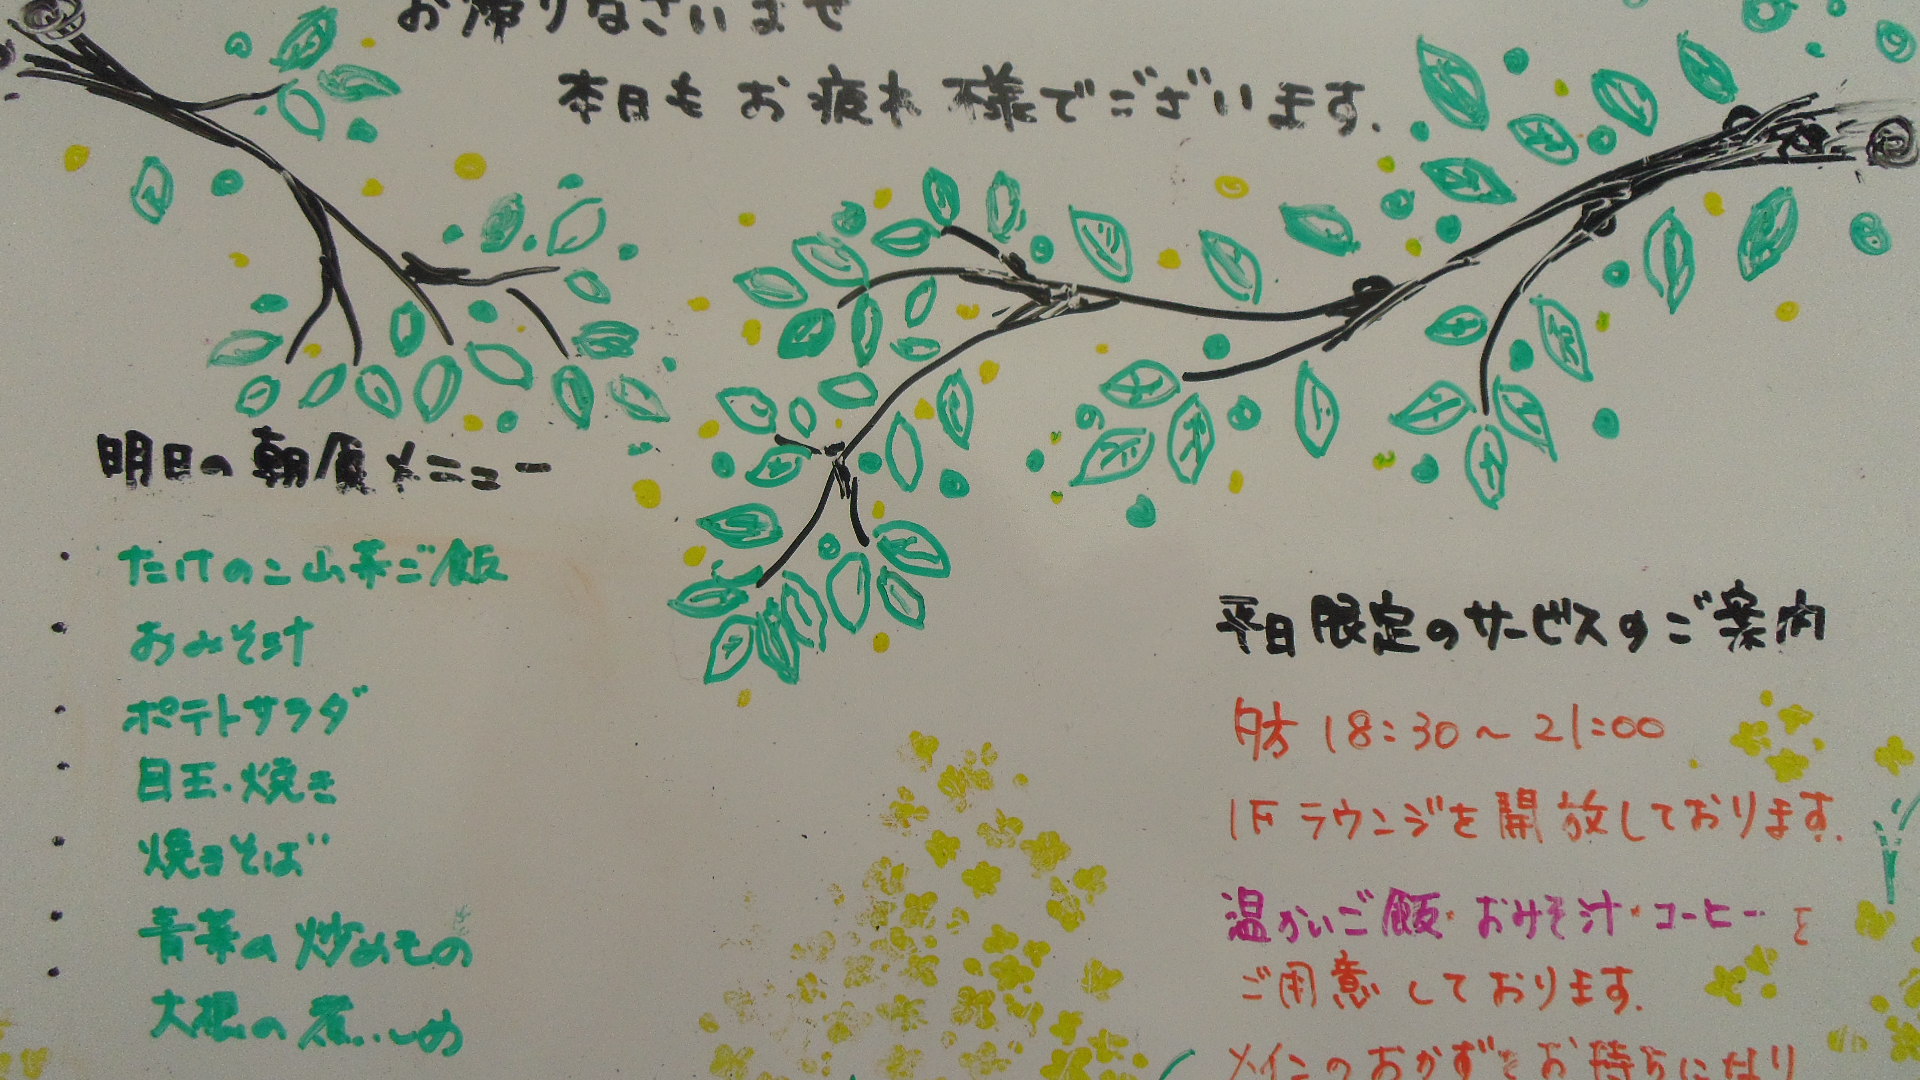 お帰りなさいませ
本日もお疲れ様でございます.
明日の朝食メニュー
・たけのこ山菜ご飯
・おみそ汁
・ポテトサラダ
・目玉焼き
・焼きそば
・青菜の炒めもの
・大根の煮しめ
平日限定のサービスのご案内
夕方 18:30～21:00
1Fラウンジを開放しております.
温かいご飯・おみそ汁・コーヒーを
ご用意しております.
メインのおかずをお持ちになり